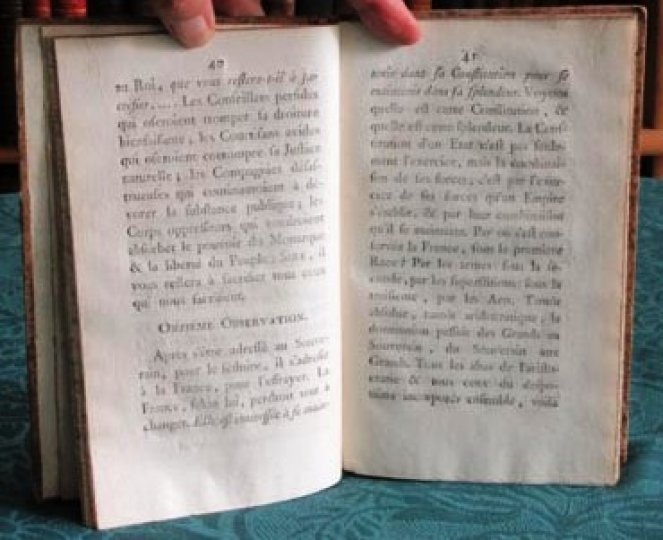 40
au Roi, que vous restera-t-il à sa-
crifier, .... Les Conseillers perfides
qui oseroient tromper sa droiture
bienfaisante; les Courtisans avides
qui oseroient corrompre sa Justice
naturelle; les Compagnies désas-
trueuses qui continueroient à dé-
vorer la substance publique; les
Corps oppresseurs, qui voudroient
absorber le pouvoir du Monarque
& la liberté du Peuple; SIRE, il
vous restera à sacrifier tous ceux
qui nous sacrifient.
ONZIEME OBSERVATION.
Après s'être adressé au Souve-
rain, pour le séduire, il s'adresse
à la France, pour l'effrayer. La
France, selon lui, perdroit tout à
changer. Elle est intéressée à se main-
41
tenir dans sa Constitution pour se
maintenir dans sa splendeur. Voyons
quelle est cette Constitution, &
quelle est cette splendeur. La Cons-
titution d'un Etat n'est pas seule-
ment l'exercice, mais la combinai-
son de ses forces; c'est par l'exer-
cice de ses forces qu'un Empire
s'établit, & par leur combinaison
qu'il se maintient. Par où s'est con-
servée la France, sous la premiere
Race? Par les armes: sous la se-
conde, par les superstitions; sous la
troisieme, par les Arts. Tantôt
absolue, tantôt aristocratique, la
domination passoit des Grands au
Souverain, du Souverain aux
Grands. Tous les abus de l'aristo-
cratie & tous ceux du despo-
tisme incorporés ensemble, voilà